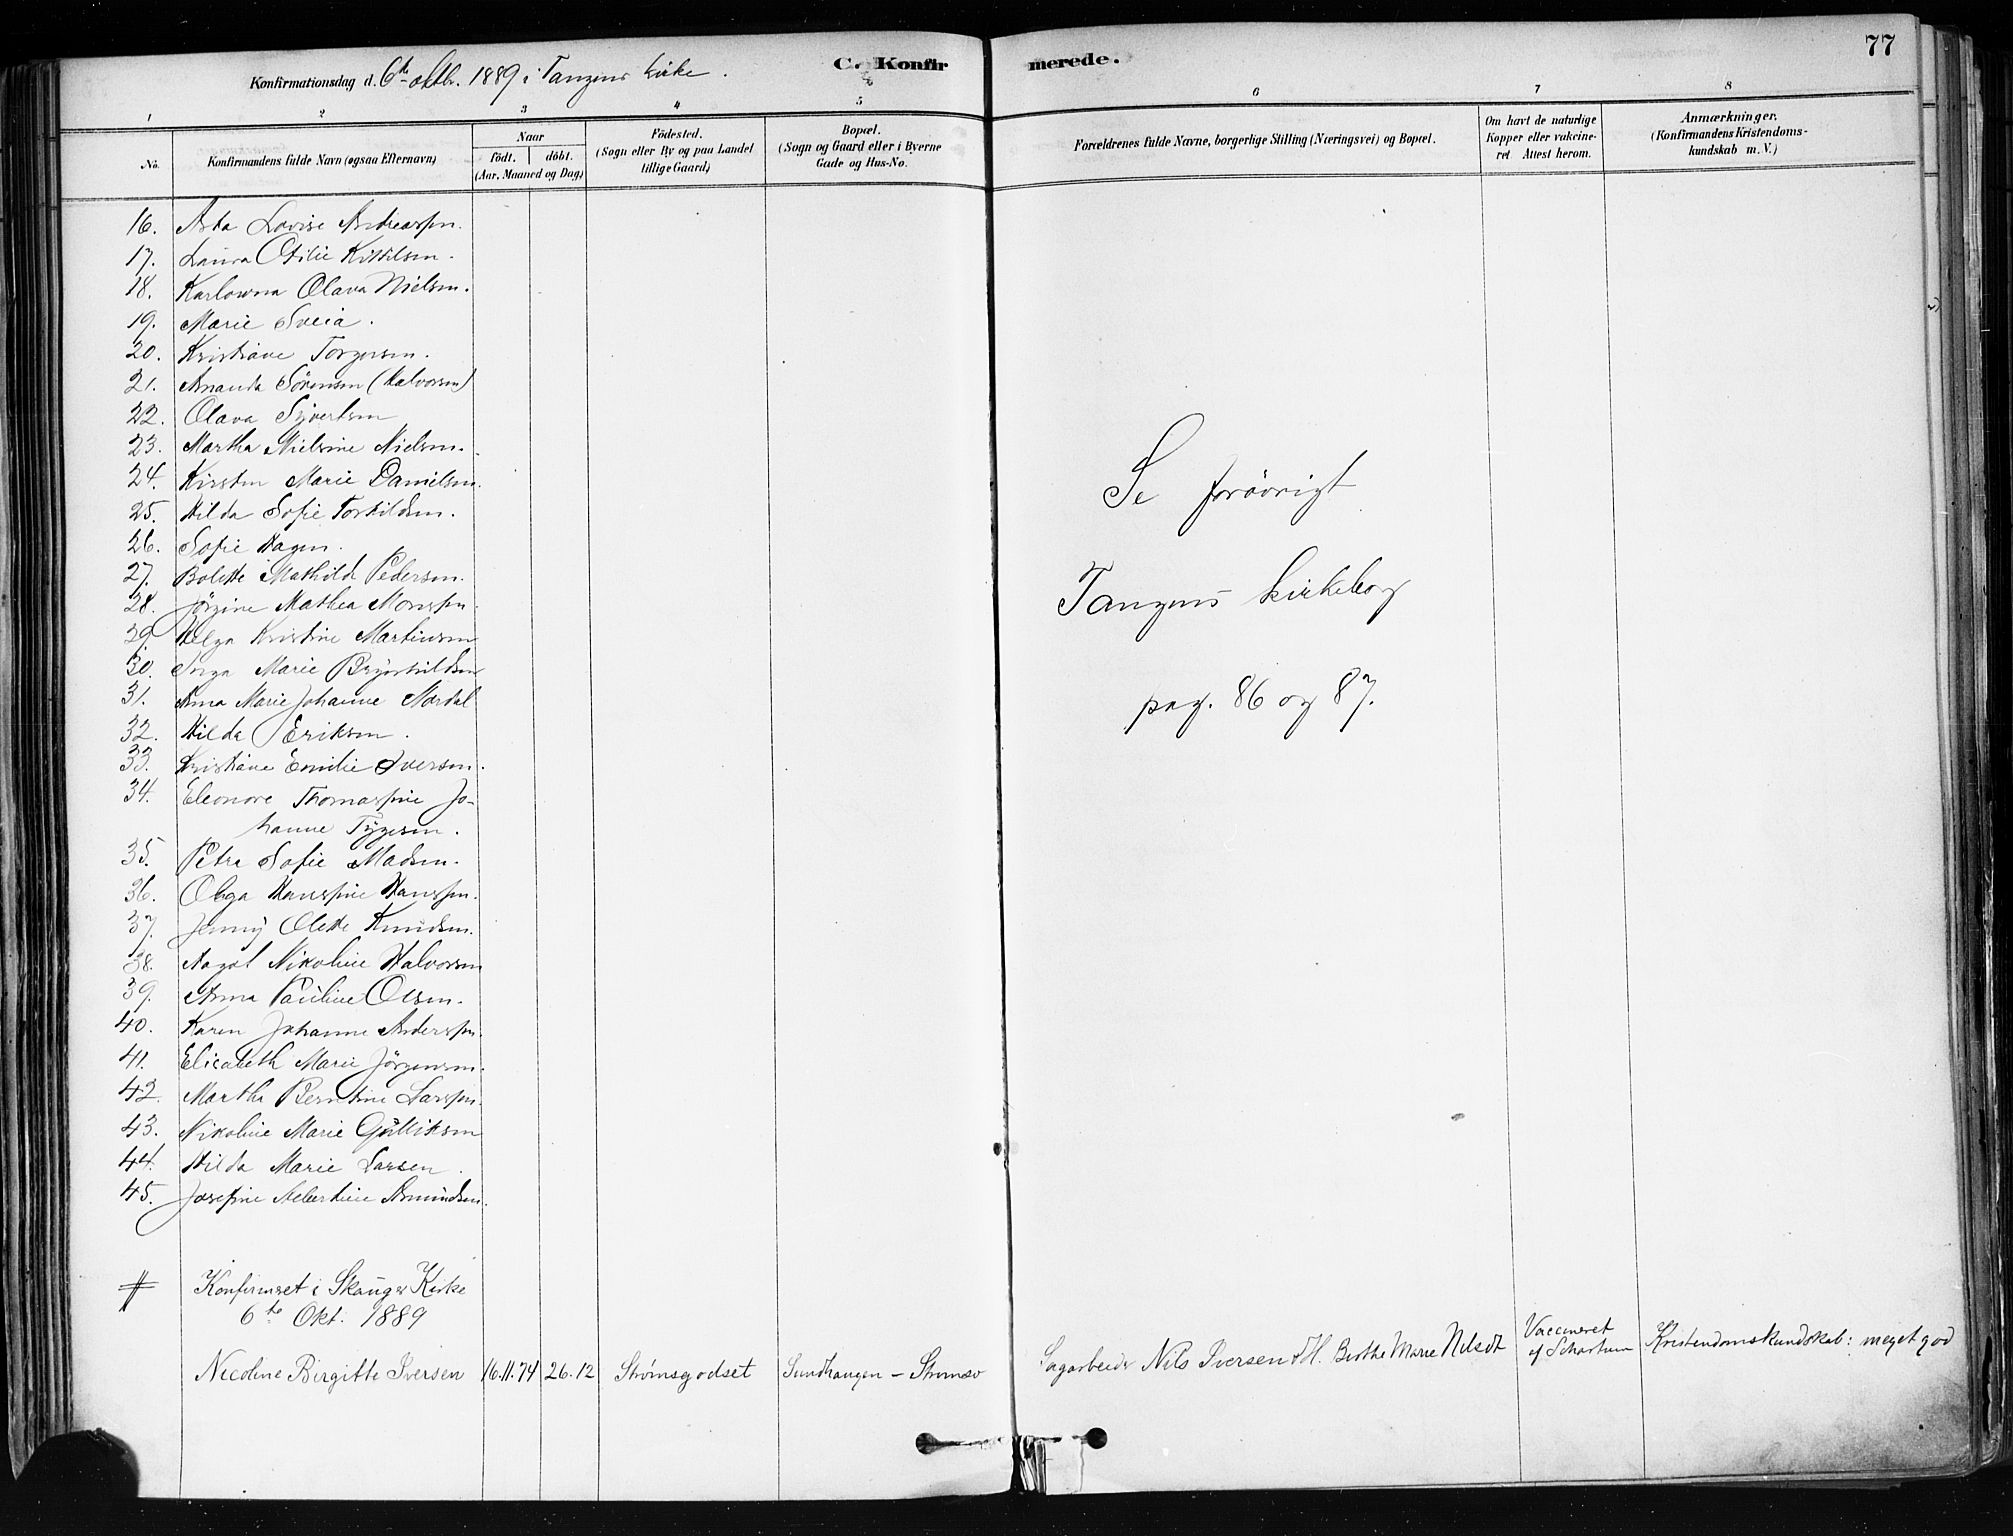 77
Konfirmationsdag d. 6te oktbr. 1889 i Tangens kirke.
C. Konfirmerede.
1 2 3 4 5 6 7 8
No.
Konfirmandens fulde Navn (ogsaa Efternavn)
Naar
født. døbt.
(Aar, Maaned og Dag)
Fødested.
(Sogn eller By og paa Landet
tillige Gaard)
Bopæl.
(Sogn og Gaard eller i Byerne
Gade og Hus-No.
Forældrenes fulde Navne, borgerlige Stilling (Næringsvei) og Bopæl.
Om havt de naturlige
Kopper eller vakcine-
ret Attest herom.
Anmærkninger.
(Konfirmandens Kristendoms-
kundskab m. V.)
16. Asta Lovise Andreassen.
17. Laura Otilie Kittilsen.
18. Karlowna Olava Nielsen.
19. Marie Sveia.
20. Kristiane Torgersen.
21. Amanda Sörensen (Halvorsen)
22. Olava Syvertsen
23. Martha Nielsine Nielsen.
24. Kirsten Marie Danielsen.
25. Hilda Sofie Torkildsen.
26. Sofie Hagen.
27. Bolette Mathild Pedersen.
28. Jörgine Mathea Monssen.
29. Helga Kristine Martinsen
30. Inga Marie Brynhildsen
31. Anna Marie Johanne Mørdal
32. Hilda Eriksen.
33. Kristiane Emilie Iversen.
34. Eleonore Thomassine Jo-
hanne Tygesen.
35. Petra Sofie Madsen.
36. Olga Hanssine Hanssen.
37. Jenny Olette Knudsen.
38. Aagot Nikoline Halvorsen
39. Anna Pauline Olsen.
40. Karen Johanne Anderssen.
41. Elisabeth Marie Jörgensen.
42. Martha Berntine Larssen.
43. Nikoline Marie Gulliksen
44. Hilda Marie Larsen.
45. Josefine Albertine Amundsen.
Se forøvrigt
Tangens kirkebog
pag. 86 og 87.
Konfirmeret i Skauger Kirke
6te Okt. 1889
Nicoline Birgitte Iversen 16.11.74 26.12 Strømsgodset Sundhaugen – Strømsø Sagarbeider Nils Iversen & H. Berthe Marie Nilsdt Vaccineret af Schartum Kristendomskundskab: meget god